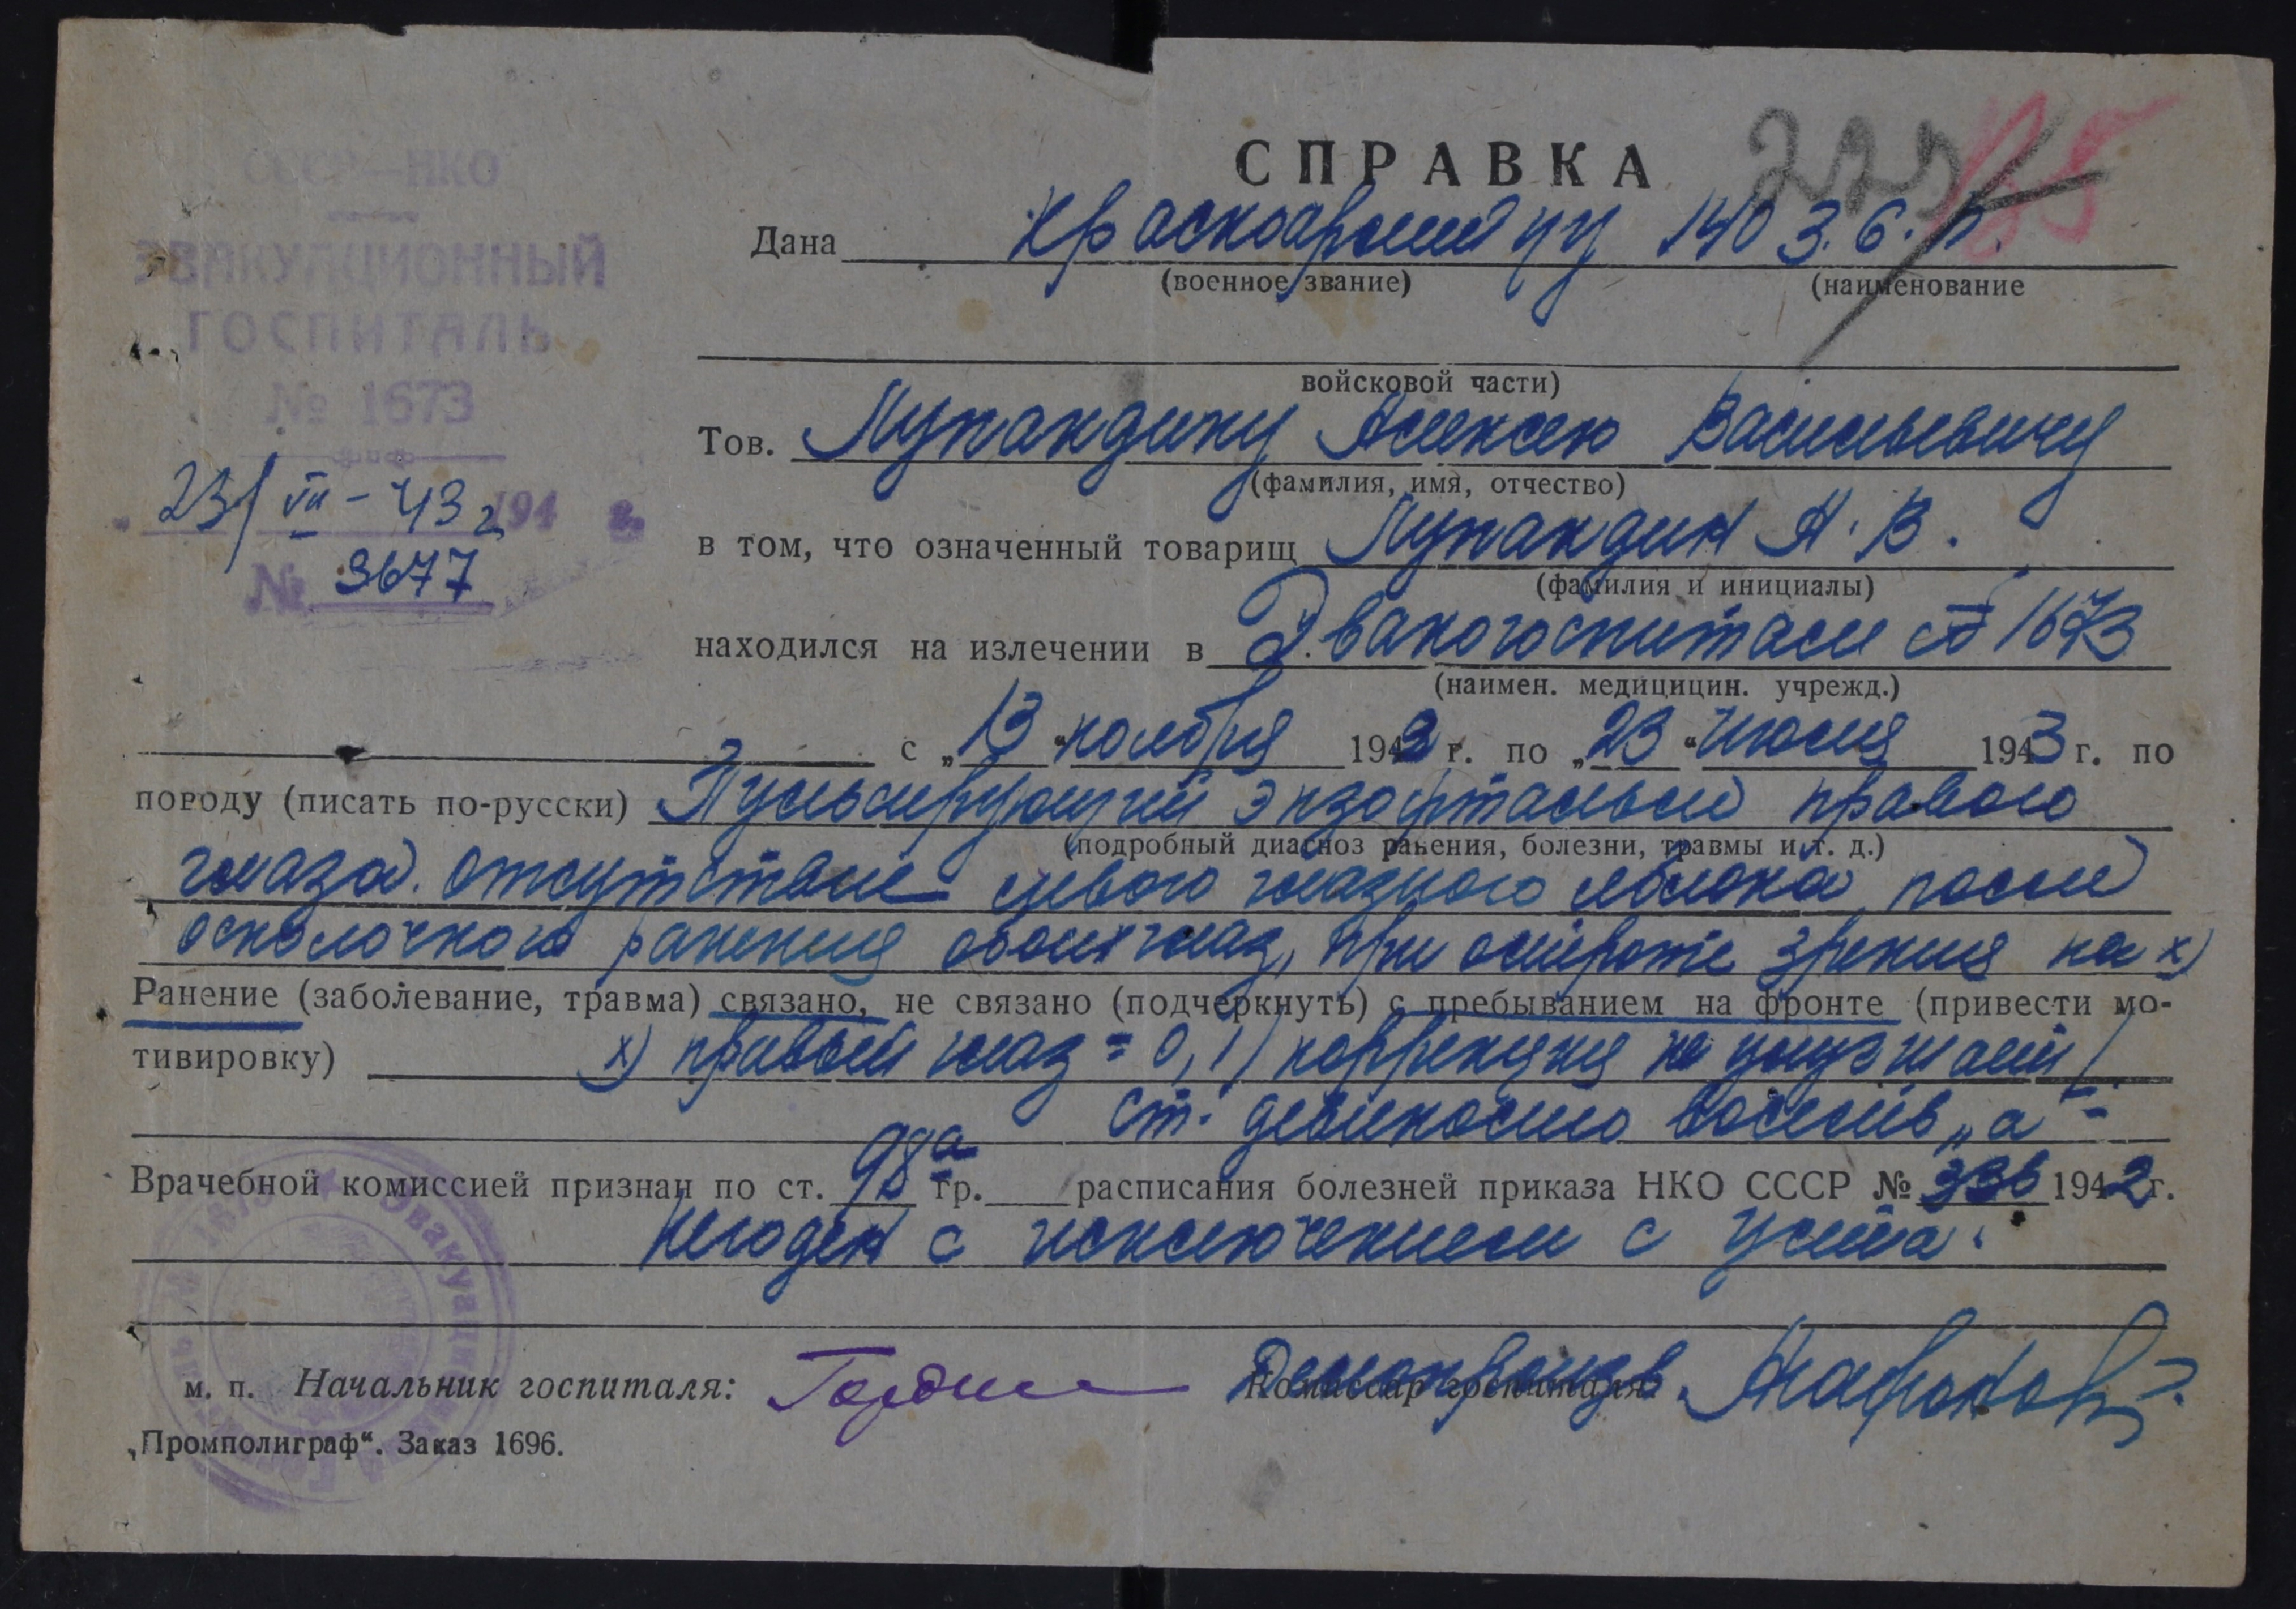 СССР—НКО
ЭВАКУАЦИОННЫЙ
ГОСПИТАЛЬ
№ 1673
23/VII – 43 г 194 г.
№ 3677
СПРАВКА
Дана Красноармейцу 140 З.С.П.
(военное звание) (наименование
войсковой части)
Тов. Лупандину Алексею Васильевичу
(фамилия, имя, отчество)
в том, что означенный товарищ Лупандин А. В.
(фамилия и инициалы)
находился на излечении в Эвакогоспитале № 1673
(наимен. медицицин. учрежд.)
с „13“ ноября 1942 г. по „23“ июля 1943 г. по
породу (писать по-русски) Пульсирующий экзофтальм правого
(подробный диагноз ранения, болезни, травмы и т. д.)
глаза. отсутствие левого глазного яблока после
осколочного ранения обоих глаз, при остроте зрения на х)
Ранение (заболевание, травма) связано, не связано (подчеркнуть) с пребыванием на фронте (привести мо-
тивировку) х) правый глаз = 0,1 /коррекция не улучшает/
ст. девяносто восемь „а“ =
Врачебной комиссией признан по ст. 98а гр. расписания болезней приказа НКО СССР № 336 1942 г.
Негоден с исключением с учета.
м. п. Начальник госпиталя: Комиссар госпиталя
„Промполиграф“. Заказ 1696.